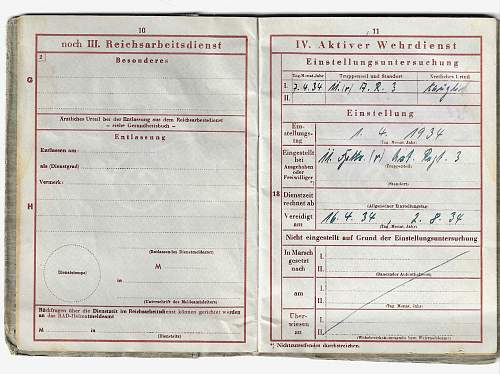 10
noch III. Reichsarbeitsdienst
2
Besonderes
G
Ärztliches Urteil bei der Entlassung aus dem Reichsarbeitsdienst
— siehe Gesundheitsbuch —
Entlassung
Entlassen am:
als (Dienstgrad)
Vermerk:
H
Dienststempel
M
(Entlassendes Dienstmeldeamt)
in
M
(Unterschrift des Meldeamtsleiters)
Rückfragen über die Dienstzeit im Reichsarbeitsdienst können gerichtet werden
an das RAD-Heimatmeldeamt
M in
(Dienstsitz)
11
IV. Aktiver Wehrdienst
Einstellungsuntersuchung
(Tag, Monat, Jahr) Truppenteil und Standort Ärztliches Urteil
I. 7.4.34 11.(r) A.R. 3 tauglich
II.
Einstellung
Ein-
stellungs-
tag
1. 4. 1934
(Tag, Monat, Jahr)
Eingestellt
bei
Ausgehoben
oder
Freiwilliger
*)
11. (r) Rgt. 3
(Truppenteil)
(Standort)
18
Dienstzeit
rechnet ab
(Allgemeiner Einstellungstag)
Vereidigt
am
16.4.34, 2.8.34
(Tag, Monat, Jahr)
Nicht eingestellt auf Grund der Einstellungsuntersuchung
In Marsch
gesetzt
nach
I.
II.
(Dauernder Aufenthaltsort)
am
I.
II.
(Tag, Monat, Jahr)
Über-
wiesen
an
I.
II.
*) Nichtzutreffendes durchstreichen.